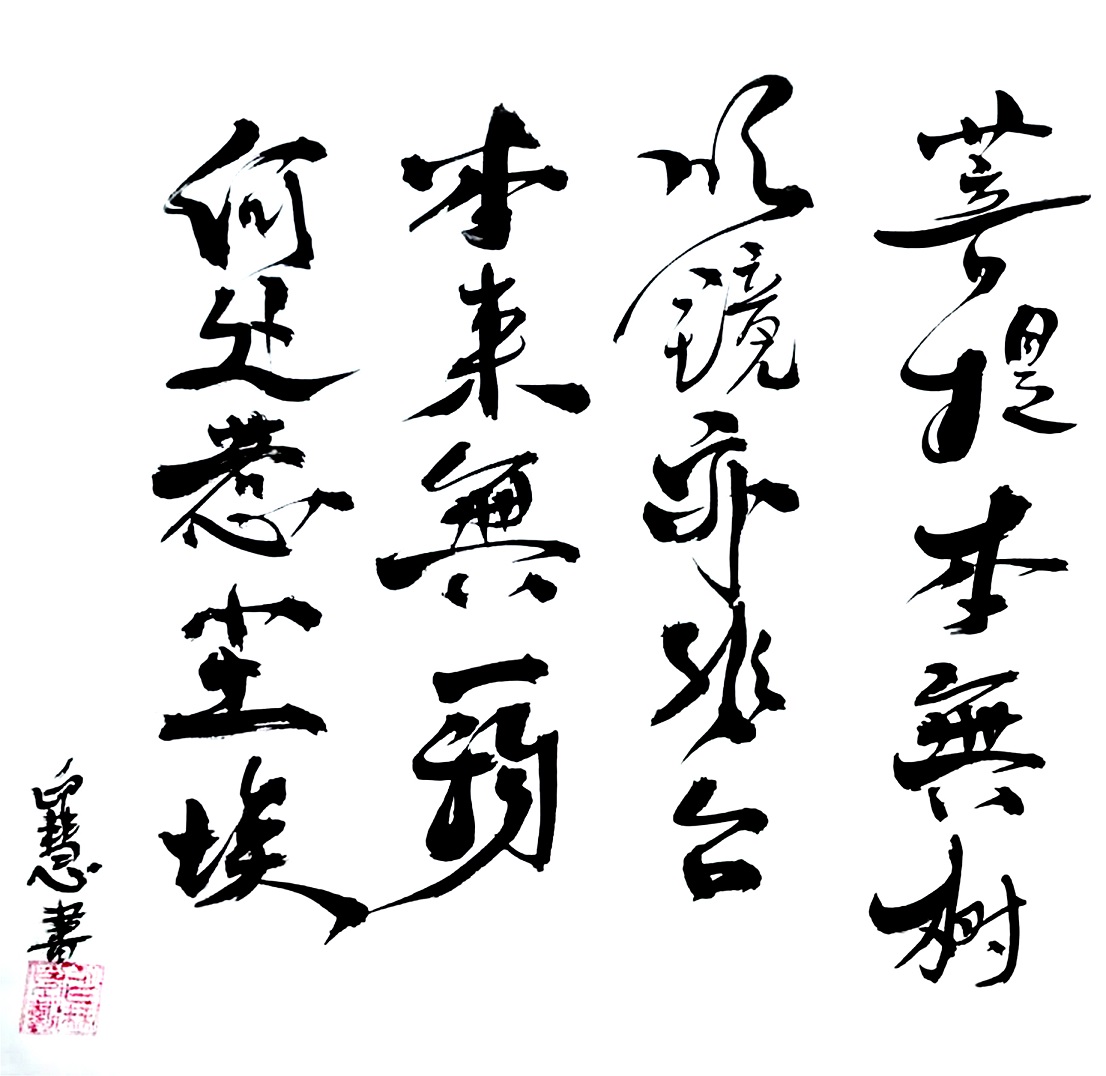 菩提本無樹
明鏡亦非台
本来無一物
何处惹尘埃
慧書